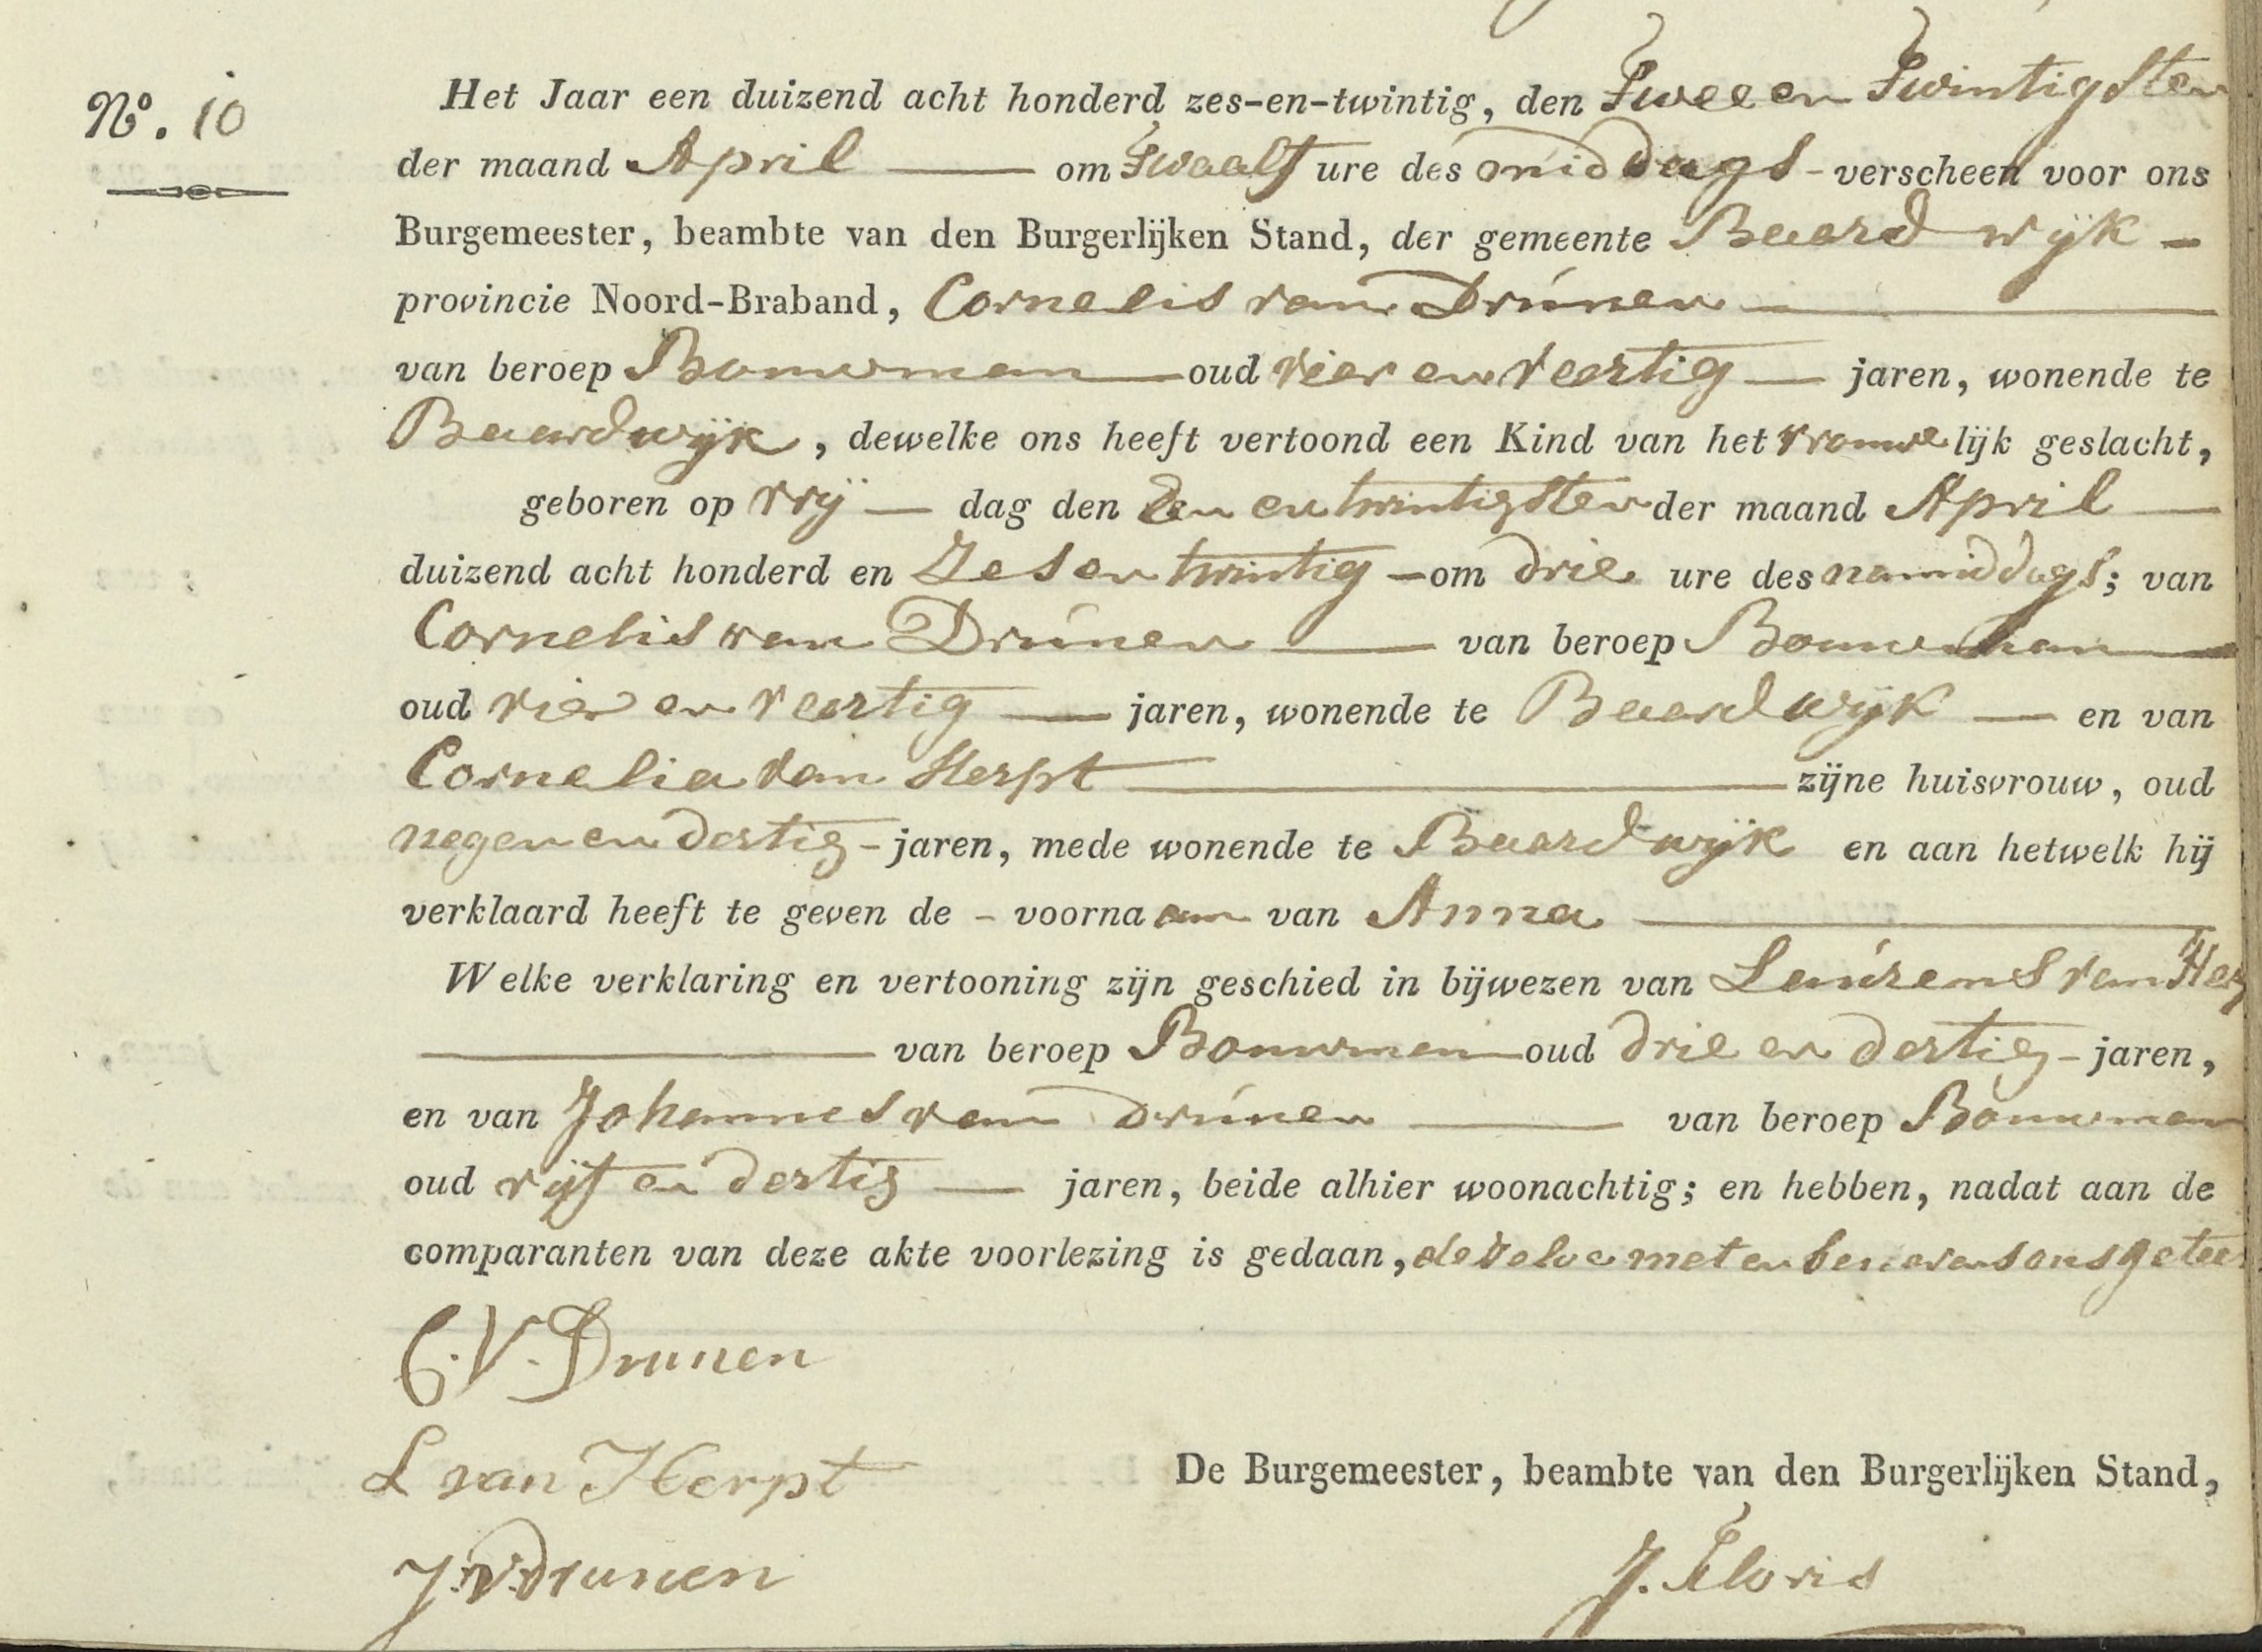 Nº. 10
Het Jaar een duizend acht honderd zes-en-twintig, den Twee en Twintigsten
der maand April — om Twaalf ure des middags - verscheen voor ons
Burgemeester, beambte van den Burgerlijken Stand, der gemeente Baardwijk -
provincie Noord-Braband, Cornelis van Drúnen —
van beroep Bouwman — oud vier en veertig — jaren, wonende te
Baardwijk, dewelke ons heeft vertoond een Kind van het vrouwelijk geslacht,
geboren op vrij — dag den Een en twintigsten der maand April —
duizend acht honderd en Zes en twintig — om drie ure des namiddags; van
Cornelis van Drúnen — van beroep Bouwman —
oud vier en veertig — jaren, wonende te Baardwijk — en van
Cornelia van Herpt — zijne huisvrouw, oud
negen en dertig - jaren, mede wonende te Baardwijk en aan hetwelk hij
verklaard heeft te geven de - voornaam van Anna —
Welke verklaring en vertooning zijn geschied in bijwezen van Laúrens van Herp
— van beroep Bouwman — oud drie en dertig - jaren,
en van Johannes van Drúnen — van beroep Bouwman
oud vijf en dertig — jaren, beide alhier woonachtig; en hebben, nadat aan de
comparanten van deze akte voorlezing is gedaan, met en benevens ons getee
C. V. Drunen
L van Herpt
De Burgemeester, beambte van den Burgerlijken Stand,
J. V. Drunen
J. Floris